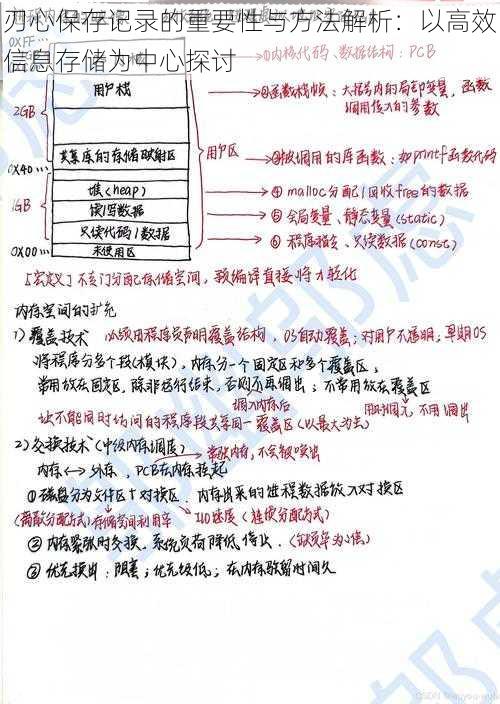 刃心保存记录的重要性与方法解析：以高效
信息存储为中心探讨
0xFF…
①内核代码、数据结构：PCB
用户栈
②函数栈帧：大括号内的局部变量，函数
调用传入的参数
2GB
共享库的存储映射区
用户区
③被调用的库函数：如printf函数代码
0x40…
堆（heap）
④ malloc分配|回收free的数据
1GB
读/写数据
⑤ 全局变量、静态变量（static）
只读代码/数据
⑥ 程序指令、只读数据（const）
0x00…
未使用区
【宏定义】不专门分配存储空间，预编译直接将才转化
内存空间的扩充
1）覆盖技术
必须由程序员声明覆盖结构，OS自动覆盖；对用户不透明；早期OS
将程序分多个段（模块），内存分一个固定区和多个覆盖区；
常用放在固定区，除非运行结束，否则不再调出；不常用放在覆盖区
调入内存后
用时调入，不用调出
让不能同时访问的程序段共享同一覆盖区（以最大为主）
2）交换技术（中级内存调度）
常驻内存，不会被换出
内存↔外存，PCB在内存挂起
①磁盘分为文件区+对换区，内存出来的进程数据放入对换区
（离散分配方式）存储空间利用率
I/O速度（连续分配方式）
②内存紧张时交换，系统负荷降低停止．（缺页率为小低）
③优先换出：阻塞；优先级低；在内存驻留时间久